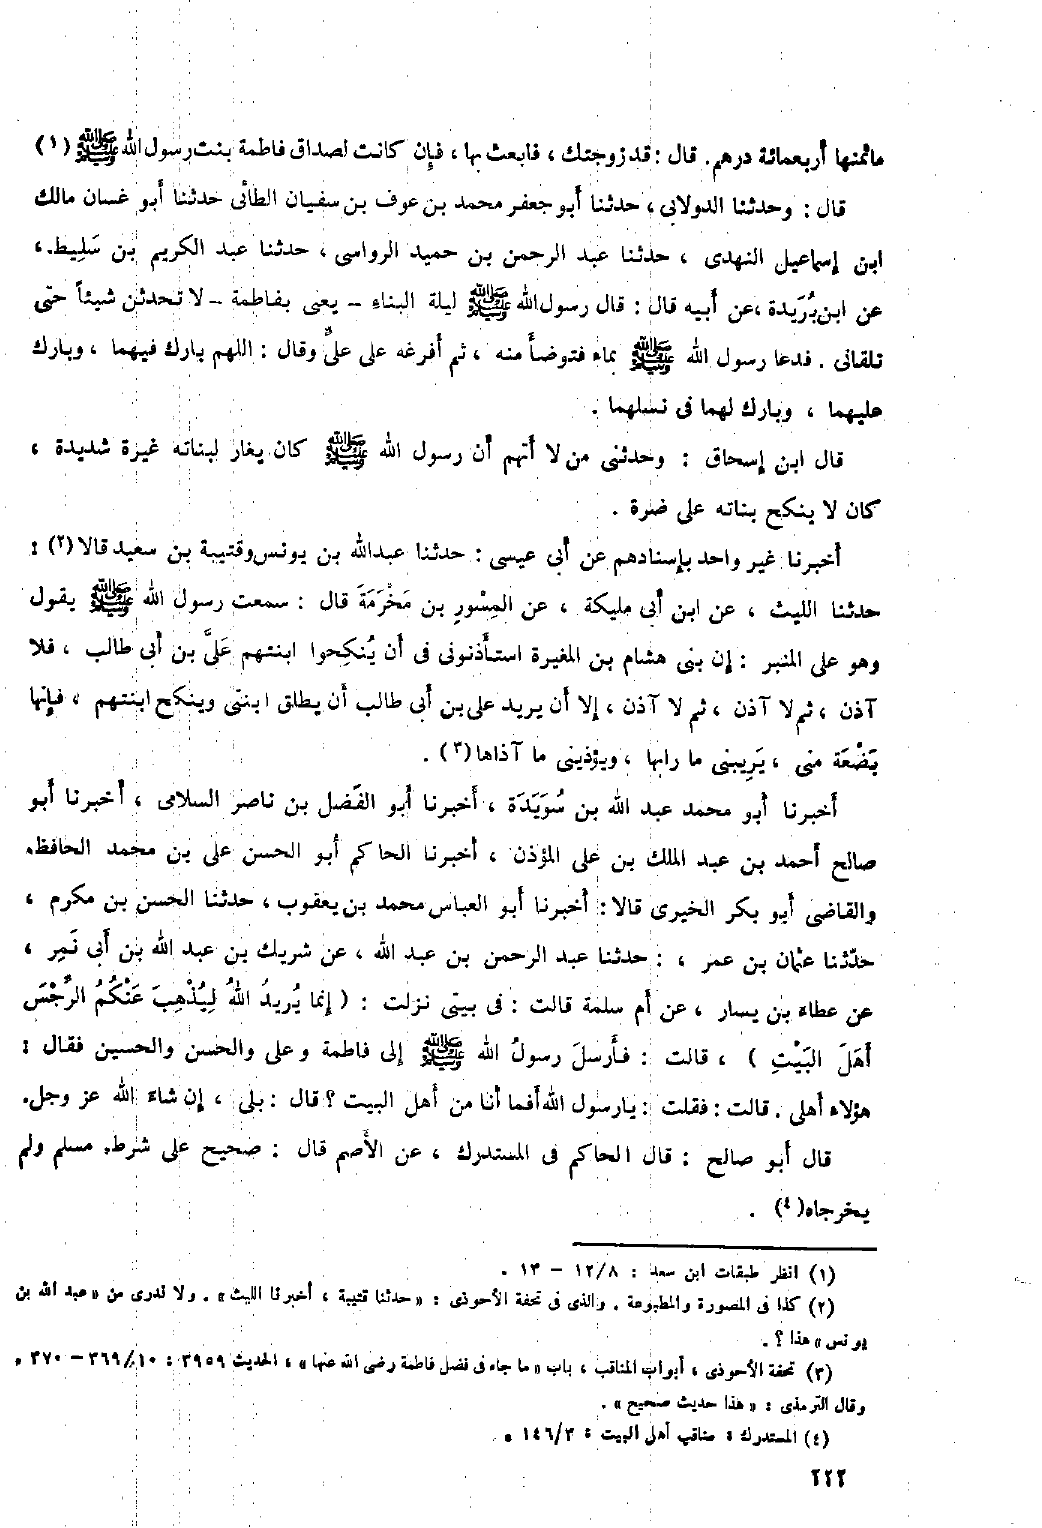 ماثمنها أربعمائة درهم. قال : قد زوجتك ، فابعث بها ، فإن كانت لصداق فاطمة بنت رسول الله ﷺ (١)
قال : وحدثنا الدولابي ، حدثنا أبو جعفر محمد بن عوف بن سفيان الطائى حدثنا أبو غسان مالك
ابن إسماعيل النهدى ، حدثنا عبد الرحمن بن حميد الرواسى ، حدثنا عبد الكريم بن سَلِيط ،
عن ابن بُرَيدة ،عن أبيه قال : قال رسول الله ﷺ ليلة البناء – يعنى بفاطمة – لا تحدثن شيئاً حتى
تلقانى . فدعا رسول الله ﷺ بماء فتوضأ منه ، ثم أفرغه على علىٌّ وقال : اللهم بارك فيهما ، وبارك
عليهما ، وبارك لهما فى نسلهما .
قال ابن إسحاق : وحدثنى من لا أتهم أن رسول الله ﷺ كان يغار لبناته غيرة شديدة ،
كان لا ينكح بناته على ضرة .
أخبرنا غير واحد بإسنادهم عن أبى عيسى : حدثنا عبدالله بن يونس وقتيبة بن سعيد قالا(٢) :
حدثنا الليث ، عن ابن أبى مليكة ، عن المِسْورِ بن مَخْرَمَةَ قال : سمعت رسول الله ﷺ يقول
وهو على المنبر : إن بنى هشام بن المغيرة استأذنونى فى أن يُنكِحوا ابنتهم عَلَىَّ بن أبى طالب ، فلا
آذن ، ثم لا آذن ، ثم لا آذن ، إلا أن يريد على بن أبى طالب أن يطلق ابنتى وينكح ابنتهم ، فإنها
بَضْعَة منى ، يَرِيبنى ما رابها ، ويؤذينى ما آذاها(٣) .
أخبرنا أبو محمد عبد الله بن سُوَيَدَة ، أخبرنا أبو الفَضل بن ناصر السلامى ، أخبرنا أبو
صالح أحمد بن عبد الملك بن على المؤذن ، أخبرنا الحاكم أبو الحسن على بن محمد الحافظ
والقاضى أبو بكر الخيرى قالا : أخبرنا أبو العباس محمد بن يعقوب ، حدثنا الحسن بن مكرم ،
حدّثنا عثمان بن عمر ، : حدثنا عبد الرحمن بن عبد الله ، عن شريك بن عبد الله بن أبى نَمِر ،
عن عطاء بن يسار ، عن أم سلمة قالت : فى بيتى نزلت : ( إنما يُرِيدُ اللهُ لِيُذْهِبَ عَنْكُمُ الرِّجْسَ
أَهَلَ البَيْتِ ) ، قالت : فأَرسلَ رسولُ الله ﷺ إلى فاطمة وعلى والحسن والحسين فقال :
هؤلاء أهلى . قالت : فقلت : يارسول الله أفما أنا من أهل البيت ؟ قال : بلى ، إن شاء الله عز وجل.
قال أبو صالح : قال الحاكم فى المستدرك ، عن الأصم قال : صحيح على شرط مسلم ولم
يخرجاه(٤) .
(١) انظر طبقات ابن سعد : ١٢/٨ – ١٣ .
(٢) كذا فى المصورة والمطبوعة . والذى فى تحفة الأحوذى : « حدثنا قتيبة ، أخبرنا الليث » . ولا ندرى من « عبد الله بن
يونس » هذا ؟ .
(٣) تحفة الأحوذى ، أبواب المناقب ، باب « ما جاء فى فضل فاطمة رضى الله عنها » ، الحديث ٣٩٥٩ : ٣٦٩/١٠ – ٣٧٠ .
وقال الترمذى : « هذا حديث صحيح » .
(٤) المستدرك : مناقب أهل البيت : ١٤٦/٣ .
٢٢٢